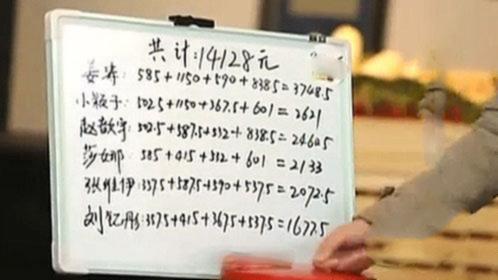 共计:14128元
585+1150+590+838.5=3748.5
小 子: 502.5+1150+367.5+601=2621
赵 宇: 502.5+587.5+532+838.5=2460.5
莎 娜: 585+415+532+601=2133
张 伊: 357.5+587.5+590+537.5=2072.5
刘 彤: 357.5+415+367.5+537.5=1677.5